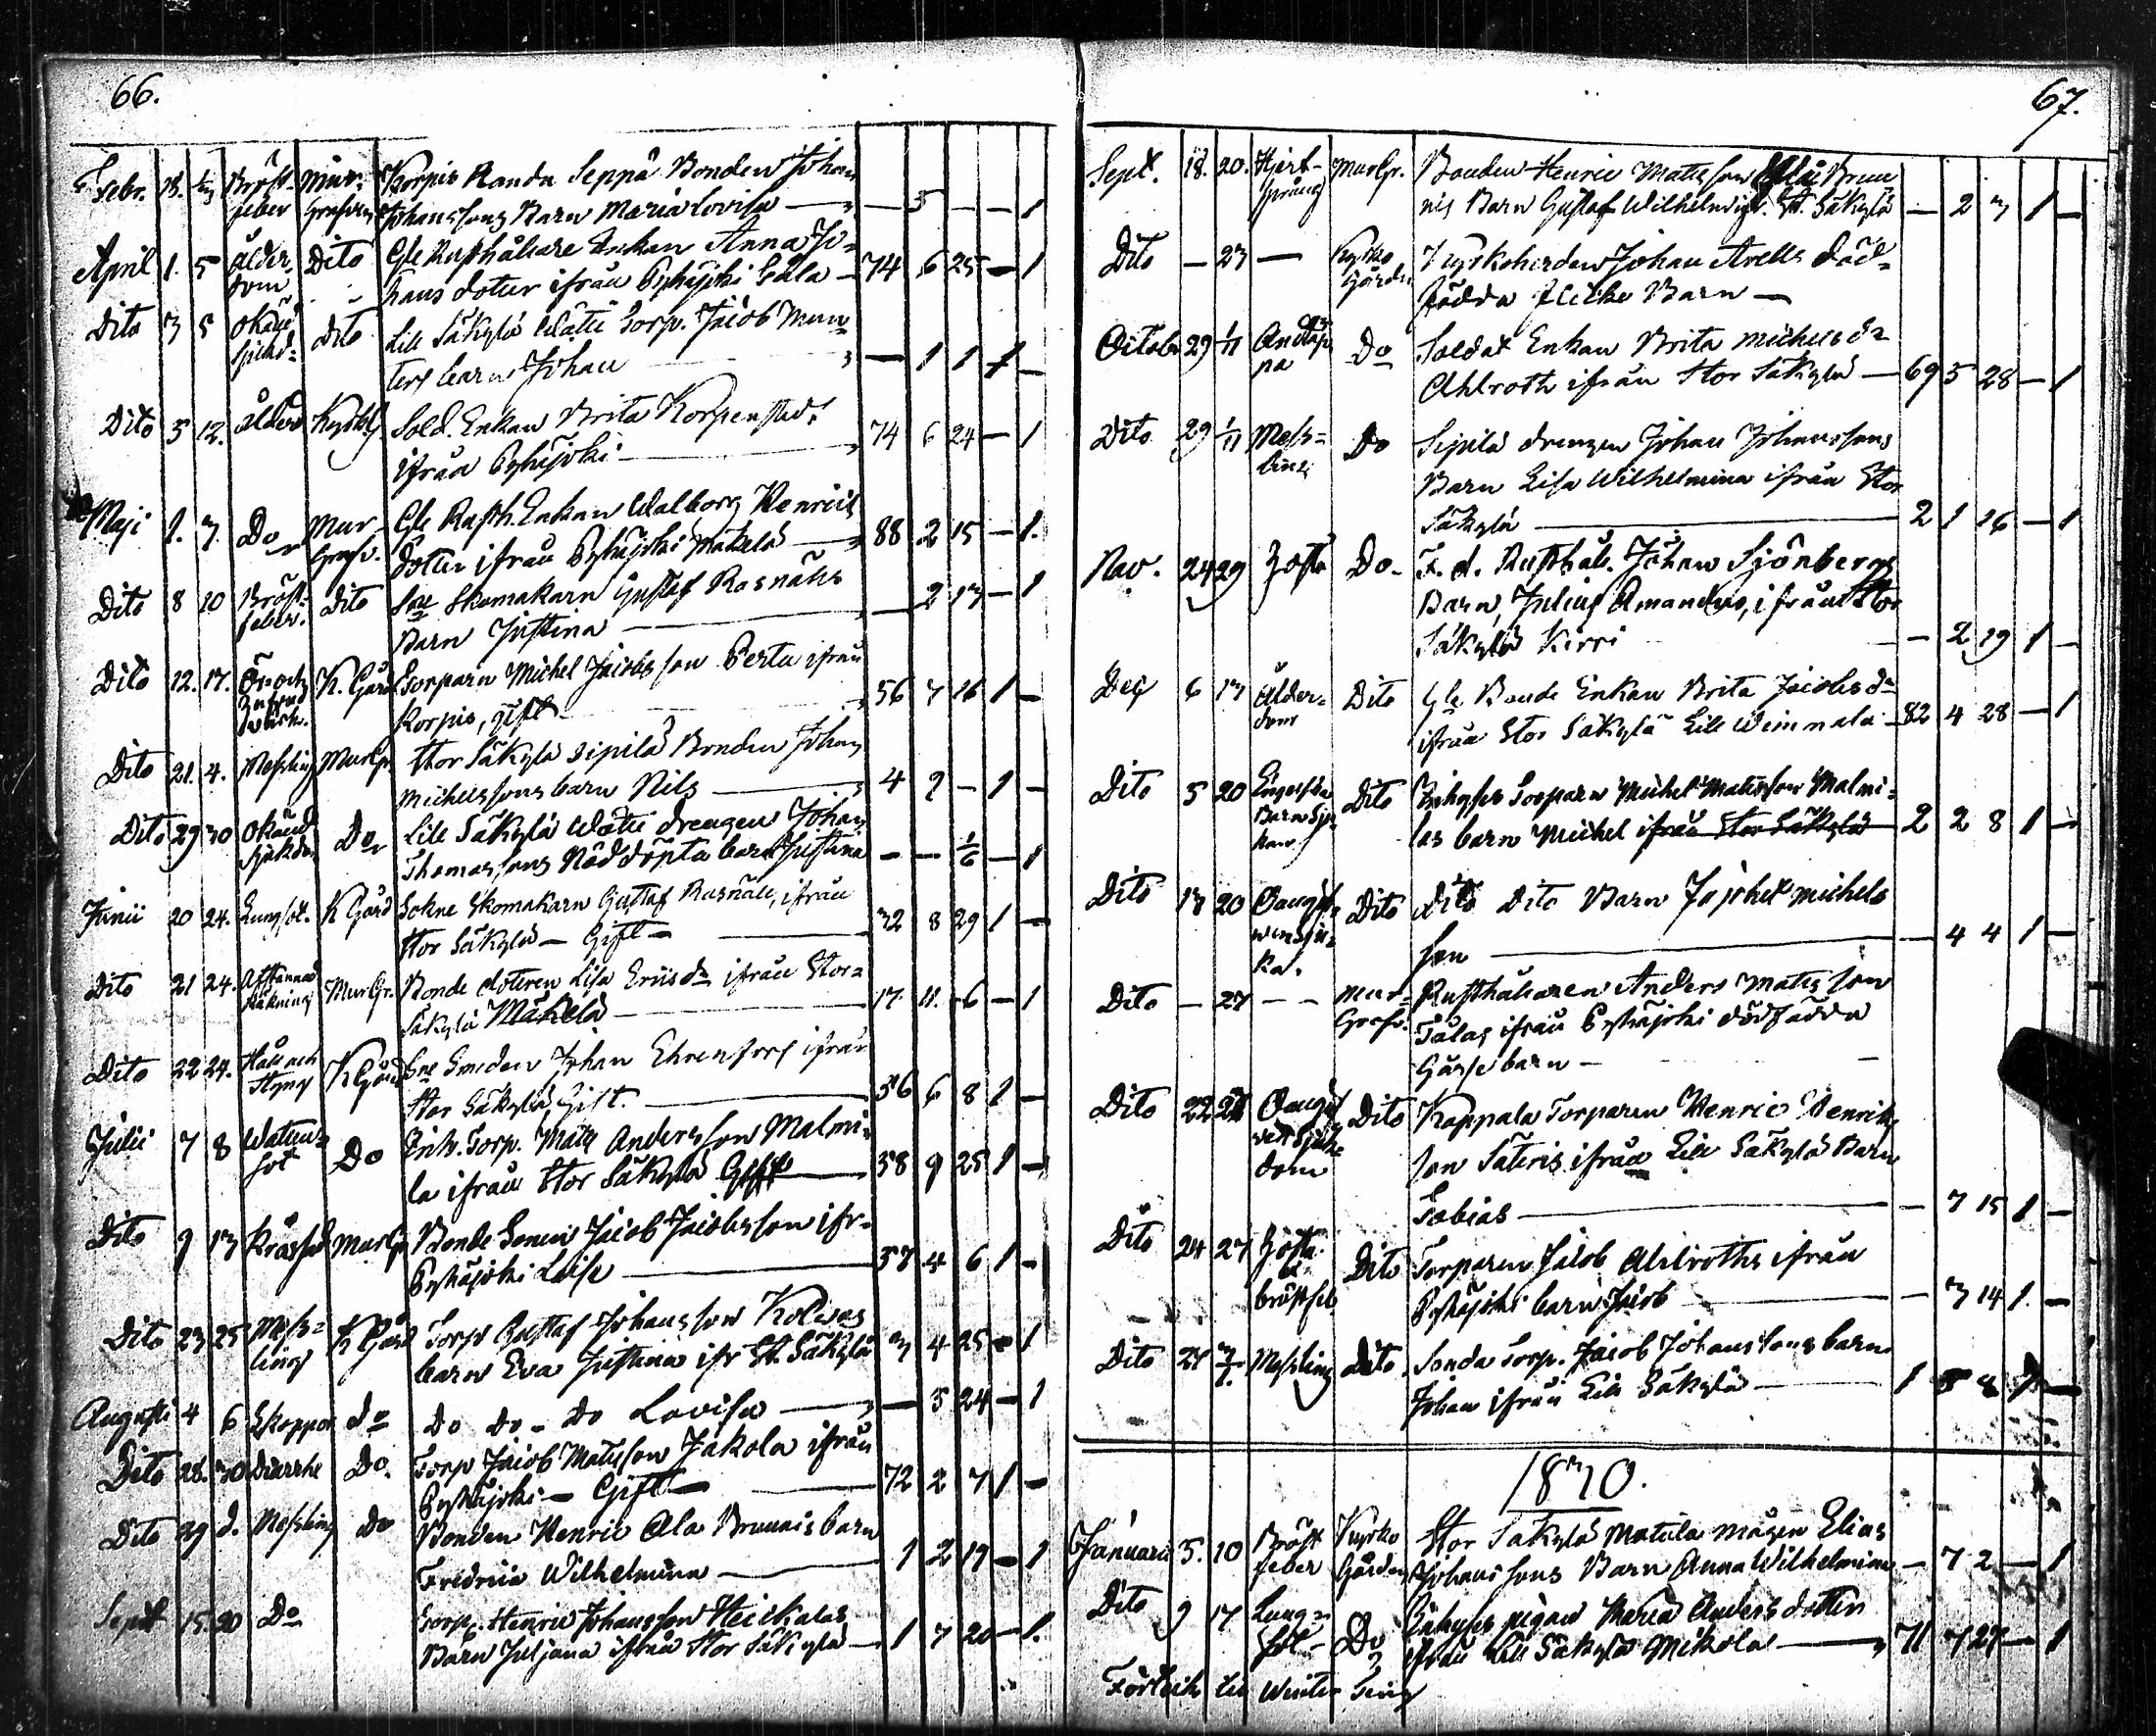 66.
Febr. 18. Bröst- Mur- Korpis Randa Seppä Bonden Johan
feber Grafven Johanssons Barn Maria Lovisa — — 5 — — 1
April 1. 5 ålder- Dito Gle Rusthållare Enkan Anna Jo-
dom hans doter ifrån Pyhäjoki Eala — 74 6 25 — 1
Dito 3 5 okänd Dito Lill Säkylä Wäti Torp. Jacob Mun-
sjukd- ters barn Johan — — 1 1 1 —
Dito 5 12. ålderd Kyrkog Sold. Enkan Brita Korpenstad.
ifrån Pyhäjoki — 74 6 24 — 1
Maji 1. 7. Do Mur- Gle Rusth. Enkan Walborg Henrics
Grafv. Dotter ifrån Pyhäjoki Mäkelä — 88 2 15 — 1.
Dito 8 10 Bröst- Dito Sne Skomakarn Gustaf Rosnähs
feber. Barn Justina — — 2 13 — 1
Dito 12. 17. K. Gård Torparn Michel Jacobsson Perta ifrån
Korpis, gift — 56 7 16 1 —
Dito 21. 4. Messling MurGr. Stor Säkylä Sipilä Bonden Johan
Michelssons barn Nils — 4 9 — 1 —
Dito 29 30 Okänd Do Lill Säkylä Wäti drengen Johan
sjukdo Thomassons Nöddöpta barn Justina — — 1/6 — 1
Junii 20 24. Lungsot. K Gård Sokne Skomakarn Gustaf Rosnäll, ifrån
Stor Säkylä — Gift — 32 8 29 1 —
Dito 21 24. Afstannad MurGr. Bonde doteren Lisa Ericsdr ifrån Stor-
Räkning Säkylä Mäkelä — 17. 11. 6 — 1
Dito 22 24. Håll och K Gård Sne Smeden Johan Ehrenfors ifrån
Styng Stor Säkylä, Gift. — 56 6 8 1 —
Julii 7 8 Watten- Do Inh. Torp. Matts Andersson Malmi-
sot la ifrån Stor Säkylä Gift — 58 9 25 1 —
Dito 9 13 MurGr Bonde Sonen Jacob Jacobsson ifr-
Pyhäjoki Laise — 57 4 6 1 —
Dito 23 25 Mess- K Gård Torp Gustaf Johansson Kolises
ling barn Eva Justina ifr St. Säkylä 3 4 25 — 1
Augusti 4 6 Skoppor do Do Do — Do Lovisa — — 5 24 — 1
Dito 28. 30 Diarrhe Do. Torp Jacob Matsson Jakola ifrån
Pyhäjoki — Gift — 72 2 7 1 —
Dito 29 d. Messling do Bonden Henric Ala Brunnis barn
Fredrica Wilhelmina — 1 2 19 — 1
Sept 15 20 Do Torp. Henric Johansson Heickalas
Barn Juljana ifrån Stor Säkylä — 1 7 20 — 1.
67.
Sept. 18. 20. Hjert- MurGr. Bonden Henric Mattsson Ala Brun
språng nis Barn Gustaf Wilhelm ifr. St. Säkylä — 2 3 1 —
Dito — 23 — Kyrko Kyrkoherden Johan Arells död-
Gården födda flicke Barn —
Octobr 29 1/11 Do Soldat Enkan Brita Michelsdr
Ahlroth ifrån Stor Säkylä — 69 5 28 — 1
Dito 29 1/11 Mess- Do Sipilä drengen Johan Johanssons
ling Barn Lisa Wilhelmina ifrån Stor
Säkylä — 2 1 16 — 1
Nov. 24 29 Hosta Do- F. d. Rusthål. Johan Sjönbergs
Barn, Julius Amandus, ifrån Stor
Säkylä Kirri — 2 19 1 —
Dec 6 13 Ålder- Dito Gle Bonde Enkan Brita Jacobsdr
dom ifrån Stor Säkylä Lill Weinnala — 82 4 28 — 1
Dito 5 20 Engelska Dito Inhyses Torparn Michel Mattsson Malmi-
Barn Sju- las barn Michel ifrån Stor Säkylä 2 2 8 1 —
kan
Dito 13 20 Oangif- Dito Dito Dito Barn Michels
ven Sju- son — — 4 4 1 —
ka.
Dito — 27 — — Mur- Rusthållaren Anders Mattsson
Grafv. Talas ifrån Pyhäjoki dödfödda
Gossebarn —
Dito 22 27 Oangif Dito Kappala Torparen Henric Henrics
ven Sjuk- son Säteris ifrån Lill Säkylä Barn
dom Tobias — — 7 15 1 —
Dito 24 27 Hosta Dito Torparen Jacob Ahlroths ifrån
& bröstfeb Pyhäjoki barn Jacob — — 3 14 1. —
Dito 27 Messling Dito. Sonda Torp. Jacob Johanssons barn
Johan ifrån Lill Säkylä — 1 5 8 1 —
1830.
Januari 5. 10 Bröst Kyrko Stor Säkylä Matula mågen Elias
feber Gården Johanssons Barn Anna Wilhelmina — 7 2 — 1
Dito 9 17 Lung- Do Inhyses pigan Maria Andersdotter
sot — ifrån Lill Säkylä Mikola — 71 7 27 — 1
till Winter Ting